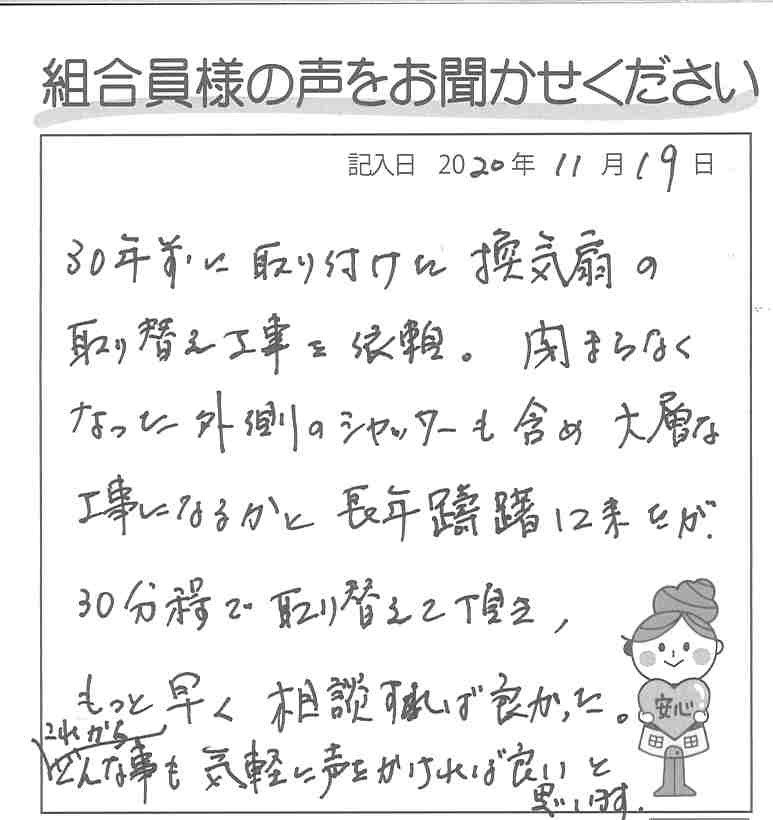 組合員様の声をお聞かせください
記入日 2020年 11月19日
30年前に取り付けた換気扇の
取り替え工事を依頼。閉まらなく
なった外側のシャッターも含め大層な
工事になるかと長年躊躇して来たが、
30分程で取り替えて頂き、
もっと早く相談すれば良かった。
これから
どんな事も気軽に声をかければ良いと
思います。
安心